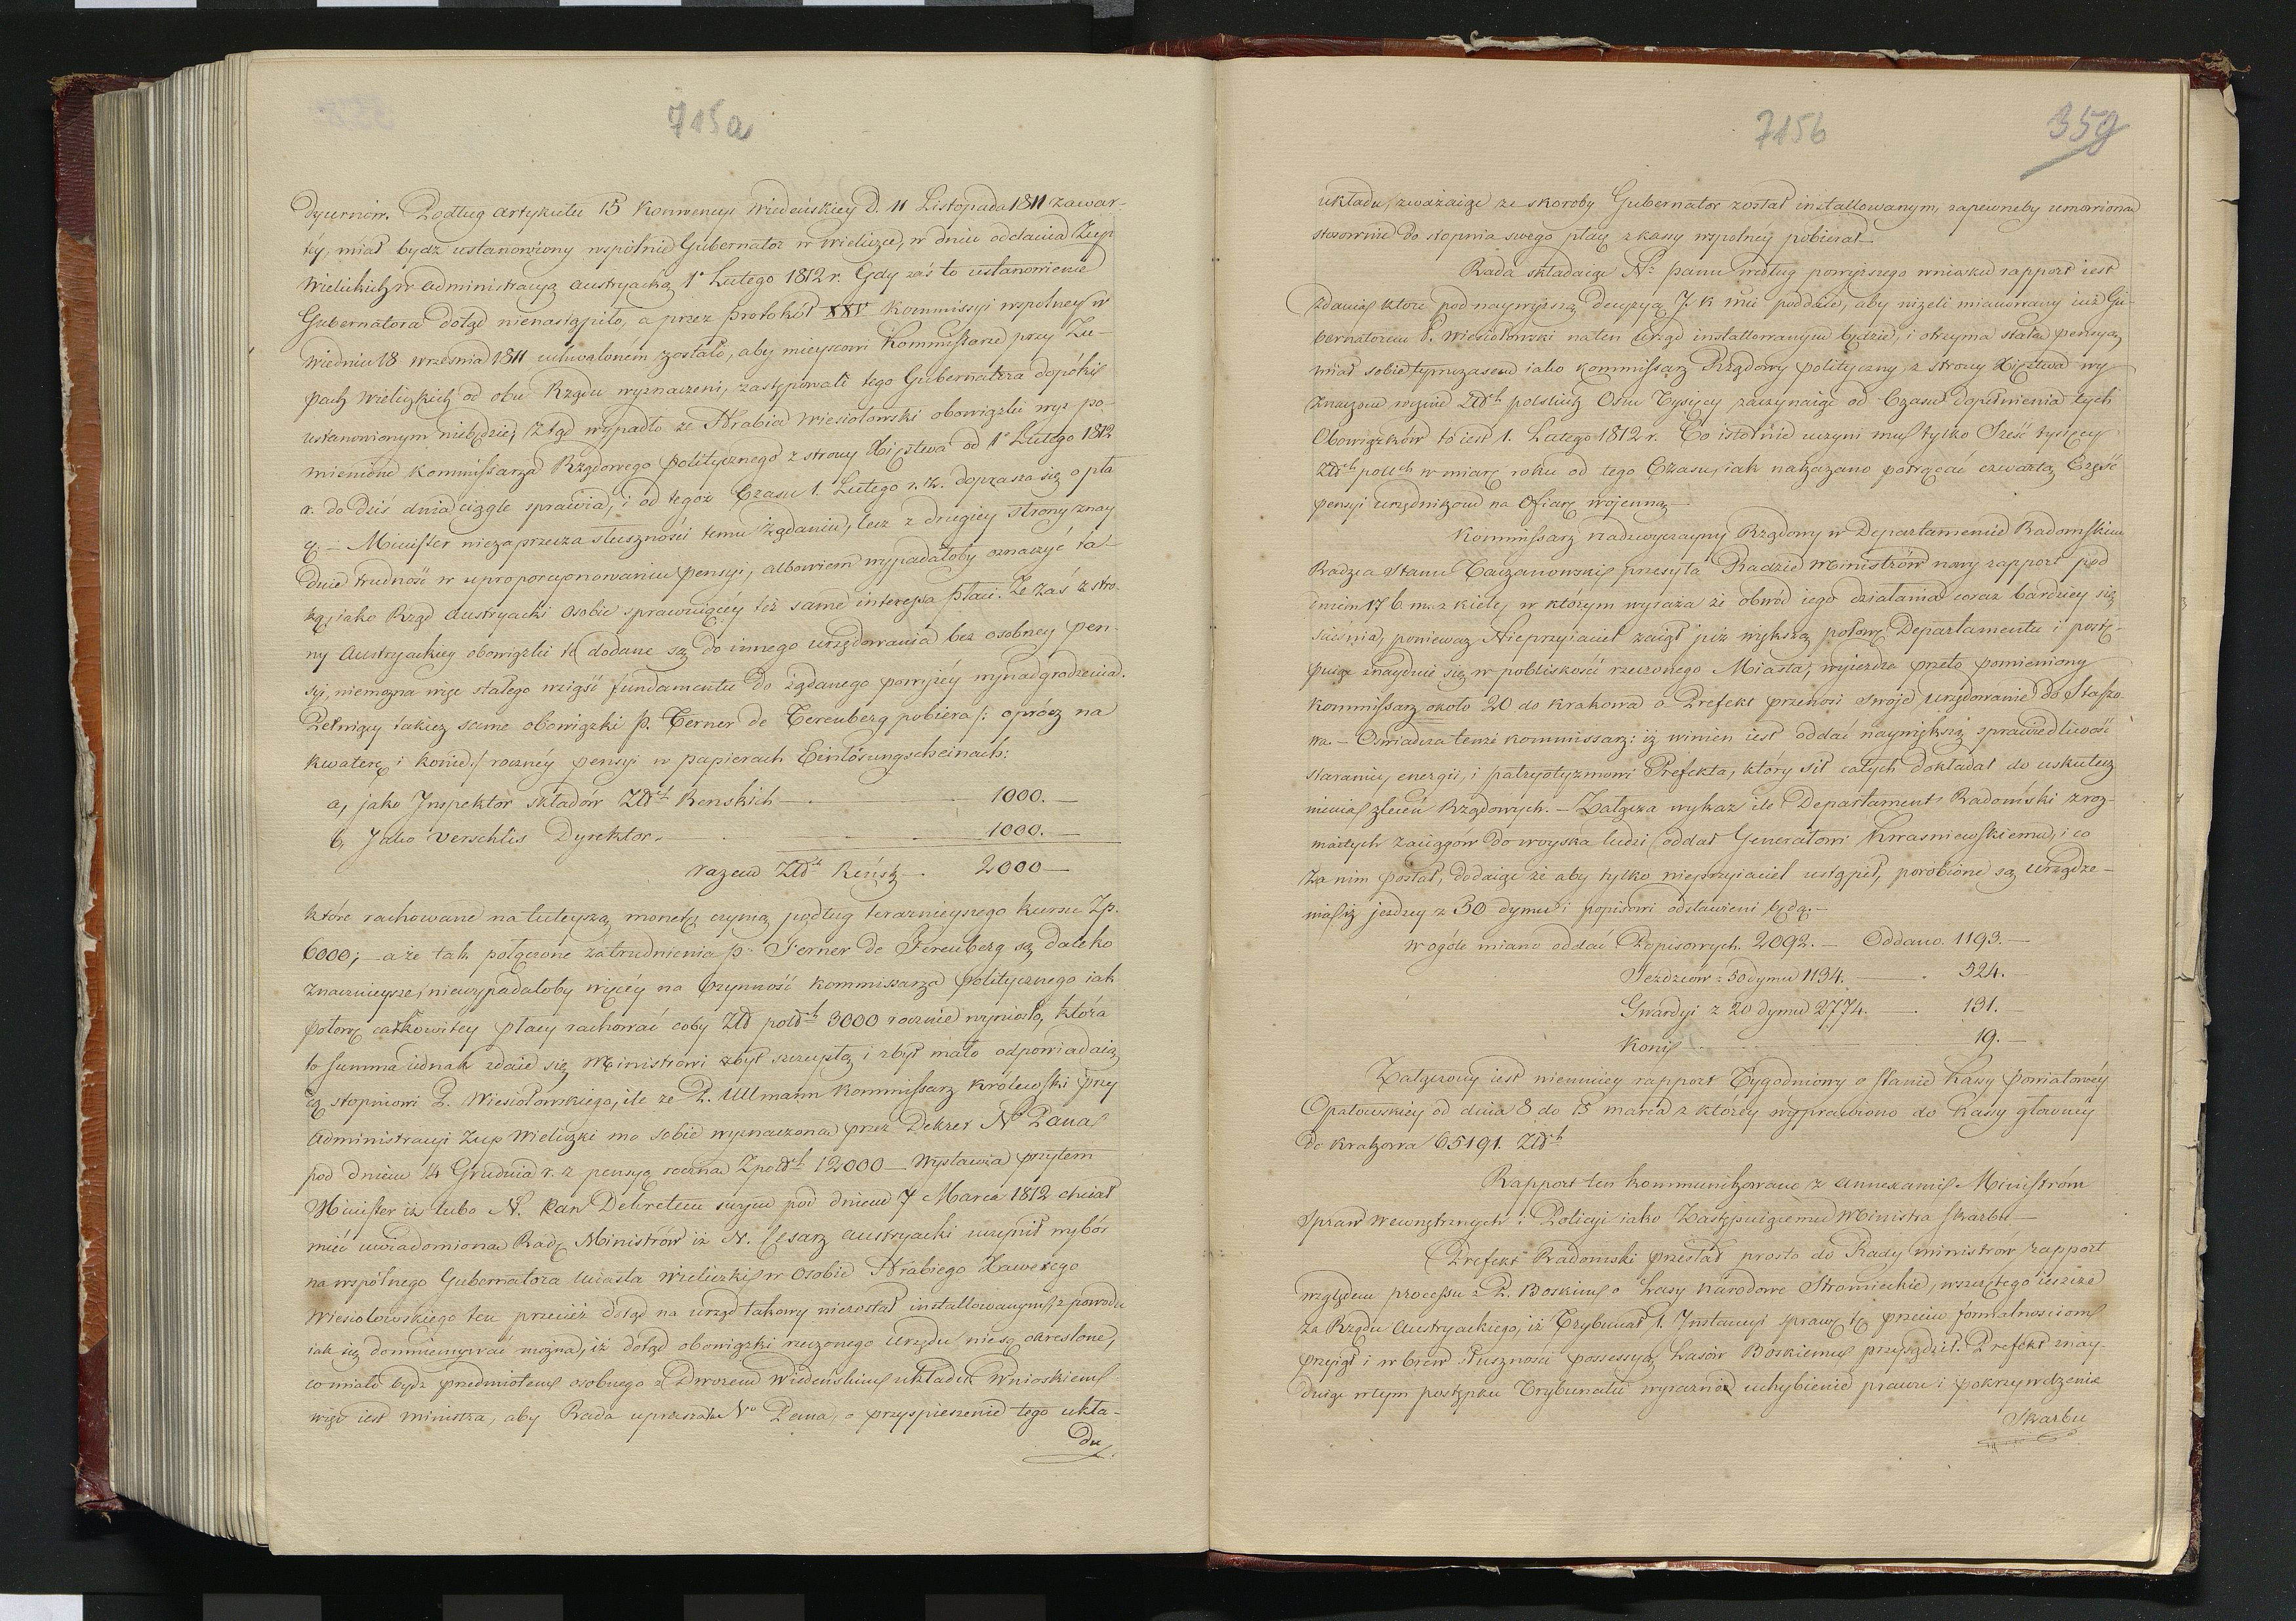 715a
Dyurnów. Podług artykułu 15 Konwencyi Wiedeńskiey d. 11 Listopada 1811 zawar-
téy, miał bydź ustanowiony wspólnie Gubernator w Wieliczce, w dniu oddania Żup
Wielickich w administracyą austryacką 1o Lutego 1812 r. Gdy zaś to ustanowienie
Gubernatora dotąd nienastąpiło, a przez protokół XXV Kommissyi wspolney w
Wiedniu 18 września 1811 uchwalonem zostało, aby mieyscowi Kommissarze przy Żu-
pach Wielickich od obu Rządu wyznaczeni, zastępowali tego Gubernatora dopókis
ustanowionym niebędzie; ztąd wypadło ze Hrabia Wiesiołowski obowiązki wyz po-
mienione Kommissarza Rządowego politycznego z strony Xięstwa od 1o Lutego 1812
r. do dziś dnia ciągle sprawia, i od tegoż Czasu 1. Lutego r. z. doprasza się o pła
cę. – Minister niezaprzecza słuszności temu żądaniu, lecz z drugiey strony znay
duie trudność w uproporcyonowaniu pensyi, albowiem wypadałoby oznaczyć ta-
ką, iako Rząd austryacki osobie sprawuiącéy też same interessa płaci. Że zaś z stro-
ny Austryackiey obowiązki te dodane są do innego urzędowania bez osobney pen-
syi, niemożna więc stałego wziąść fundamentu do żądanego powyżéy wynadgrodzenia.
Pełniący takież same obowiązki p. Ferner de Fereuberg pobiera /: oprócz na
kwaterę i konie :/ roczney pensyi w papierach Einlösungscheinach:
a, jako Inspektor składów Złłch Renskich —. 1000. —
b, Jako Verschlis Dyrektor. 1000. —
razem Złłch Reńsk —. 2000 —
które rachowane na tuteyszą monetę czynią podług teraznieyszego kursu Zp.
6000; – a że tak połączone zatrudnienia p. Ferner de Fereuberg są daleko
znacznieysze, niewypadałoby więcéy na czynność Kommissarza politycznego iak
połowę całkowitey płacy rachować coby Złł polsch 3000 rocznie wyniosło, która
to summa iednak zdaie się Ministrowi zbyt szczupłą i zbyt mało odpowiadaią
cą stopniowi P. Wiesiołowskiego, ile ze P. Ullmann Kommissarz Królewski przy
Administracyi Żup Wieliczki ma sobie wyznaczoną przez Dekret No Pana
pod dniem 14 Grudnia r. z. pensyą roczną Zpolsch 12000 — Wystawia przytem
Minister iż lubo N. Pan Dekretem swym pod dniem 7 Marca 1812 chciał
mieć uwiadomioną Radę Ministrów iż N. Cesarz austryacki uczynił wybór
na wspólnego Gubernatora miasta wieliczki w osobie Hrabiego Xawerego
Wiesiołowskiego ten przecież dotąd na urząd takowy niezostał installowanym, z powodu
iak się domniemywać można, iż dotąd obowiązki rzeczonego Urzędu niesą okreslone,
co miało bydz przedmiotem osobnego z Dworem Wiedenskim układu. Wnioskiem
więc iest ministra, aby Rada upraszała No Pana, o przyspieszenie tego ukła-
du
7156
359
układu, zważaiąc ze skoroby Gubernator został installowanym, zapewneby umowioną
stosownie do stopnia swego płacę z kassy wspolney pobierał. —
Rada składaiąc No panu według powyższego wniosku rapport iest
zdania które pod naywyższą decyzyą J. K. Mci poddaie, aby nizeli mianowany już Gu-
bernatorem P. Wiesiołowski na ten Urząd installowanym będzie, i otrzyma stałą pensyą,
miał sobie tymczasem iako Kommissarz Rządowy polityczny, z strony Xięztwa wy
znaczone rocznie Złłch polskich Osm Tysięcy zaczynaiąc od Czasu dopełnienia tych
Obowiązków to iest 1. Lutego 1812 r. Co istotnie uczyni mu tylko Sześć tysięcy
Złłch polsch w miarę roku od tego Czasu, iak nakazano potrącać czwartą Część
pensyi urzędnikom na Ofiarę wojenną —
Kommissarz nadzwyczayny Rządowy w Departamencie Radomskim
Radzca Stanu Łączanowski przesyła Radzie Ministrów nowy rapport pod
dniem 17 b. m. z Kielc, w którym wyraża że obwód iego działania coraz bardziey się
ścieśnia, ponieważ Nieprzyiaciel zaiął już większą połowę Departamentu i postę-
puiąc znayduie się w pobliskości rzeczonego Miasta, wyieżdża przeto pomieniony
Kommissarz około 20 do Krakowa a Prefekt przenosi swoje urzędowanie do Staszo
wa. – Oswiadcza tenże Kommissarz: iż winien iest oddać naywiększą sprawiedliwość
staranney energii, i patryotyzmowi Prefekta, który sił całych dokładał do uskutecz
nienia zleceń Rządowych. – Załącza wykaz ile Departament Radomski z roz-
maitych zaciągów do woyska ludzi oddał Generałowi Kwasniewskiemu, i co
za nim posłał, dodaiąc że aby tylko nieprzyiaciel ustąpił, porobione są urządze-
nia iż jezdzcy z 50 dymu i popisowi odstawieni będą. –
W ogóle miano oddać Popisowych 2092. — Oddano. 1193. —
Jezdzców z 50 dymu 1134. — 524. —
Gwardyi z 20 dymu 2774. — 131. —
Koni 19. —
Załączony iest niemniey rapport Tygodniowy o stanie kassy powiatowéy
Opatowskiey od dnia 8 do 15 marca z którey wyprawiono do Kassy główney
do Krakowa 65191. Złłch
Rapport ten kommunikowano z annexami Ministrom
spraw wewnętrznych i Policyi iako Zastępuiącemu Ministra skarbu. —
Prefekt Radomski przesłał prosto do Rady ministrów rapport
względem processu z P. Boskim o Lasy Narodowe Stromieckie, wszczętego ieszcze
za Rządu Austryackiego, iż Trybunał 1. Instancyi sprawę tę przeciw formalnosciom
przyiął i wbrew słusznosci possessyą Lasów Boskiemu przysądził. Prefekt znay-
duiąc w tym postępku Trybunału wyraznie uchybienie prawu i pokrzywdzenie
Skarbu